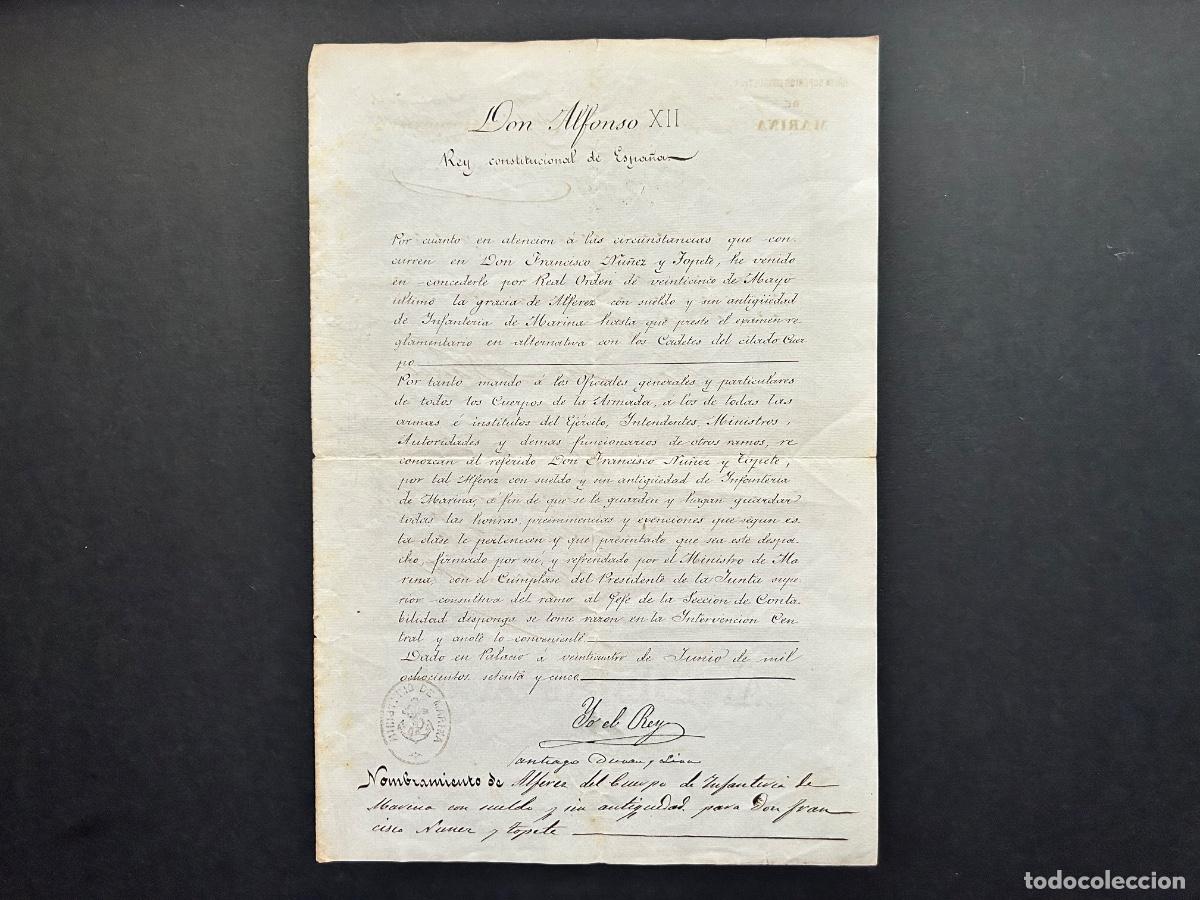 Don Alfonso XII
Rey constitucional de España
Por cuanto en atencion á las circunstancias que con-
curren en Don Francisco Nuñez y Topete, he venido
en concederle por Real Orden de veinticinco de Mayo
último la gracia de Alferez con sueldo y sin antigüedad
de Infanteria de Marina hasta que preste el examen re-
glamentario en alternativa con los Cadetes del citado Cuer-
po
Por tanto mando á los Oficiales generales y particulares
de todos los Cuerpos de la Armada, á los de todas las
armas é institutos del Ejército, Intendentes, Ministros,
Autoridades y demas funcionarios de otros ramos, re
conozcan al referido Don Francisco Nuñez y Topete,
por tal Alferez con sueldo y sin antigüedad de Infanteria
de Marina, á fin de que se le guarden y hagan guardar
todas las honras, preminencias y exenciones que segun es-
ta clase le pertenecen y que presentado que sea este despa-
cho, firmado por mi, y refrendado por el Ministro de Ma
rina, con el Cúmplase del Presidente de la Junta supe-
rior consultiva del ramo al Gefe de la Seccion de Conta-
bilidad disponga se tome razon en la Intervencion Cen-
tral y anote lo conveniente
Dado en Palacio á veinticuatro de Junio de mil
ochocientos setenta y cinco
MINISTERIO DE MARINA
Yo el Rey
Santiago Duran y Lira
Nombramiento de Alferez del Cuerpo de Infanteria de
Marina con sueldo y sin antiguedad para Don Fran
cisco Nuñez y Topete
MARINA
DE
todocoleccion